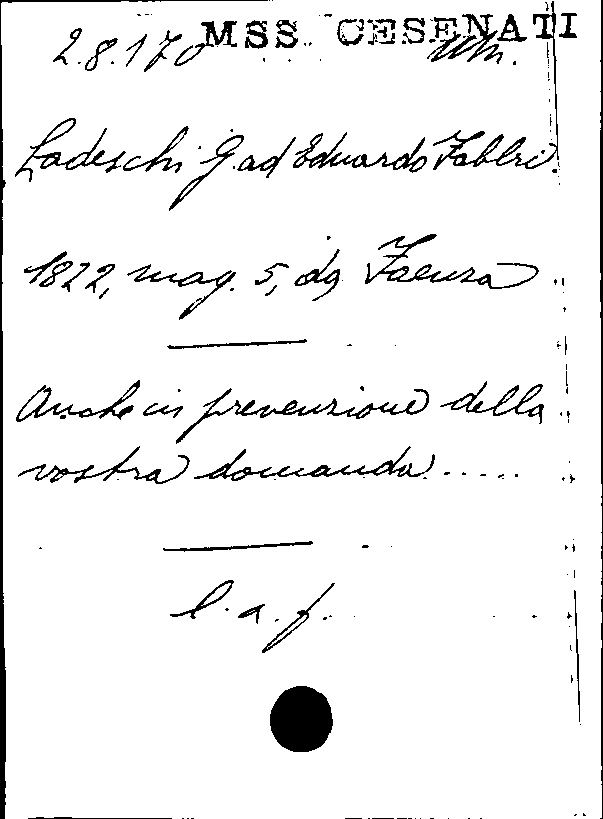 MSS. CESENATI
2.8.170
Ladeschi G. ad Eduardo Fabbri.
1822, mag. 5, da Faenza
Anche in prevenzione della
vostra domanda.....
l. a. f.